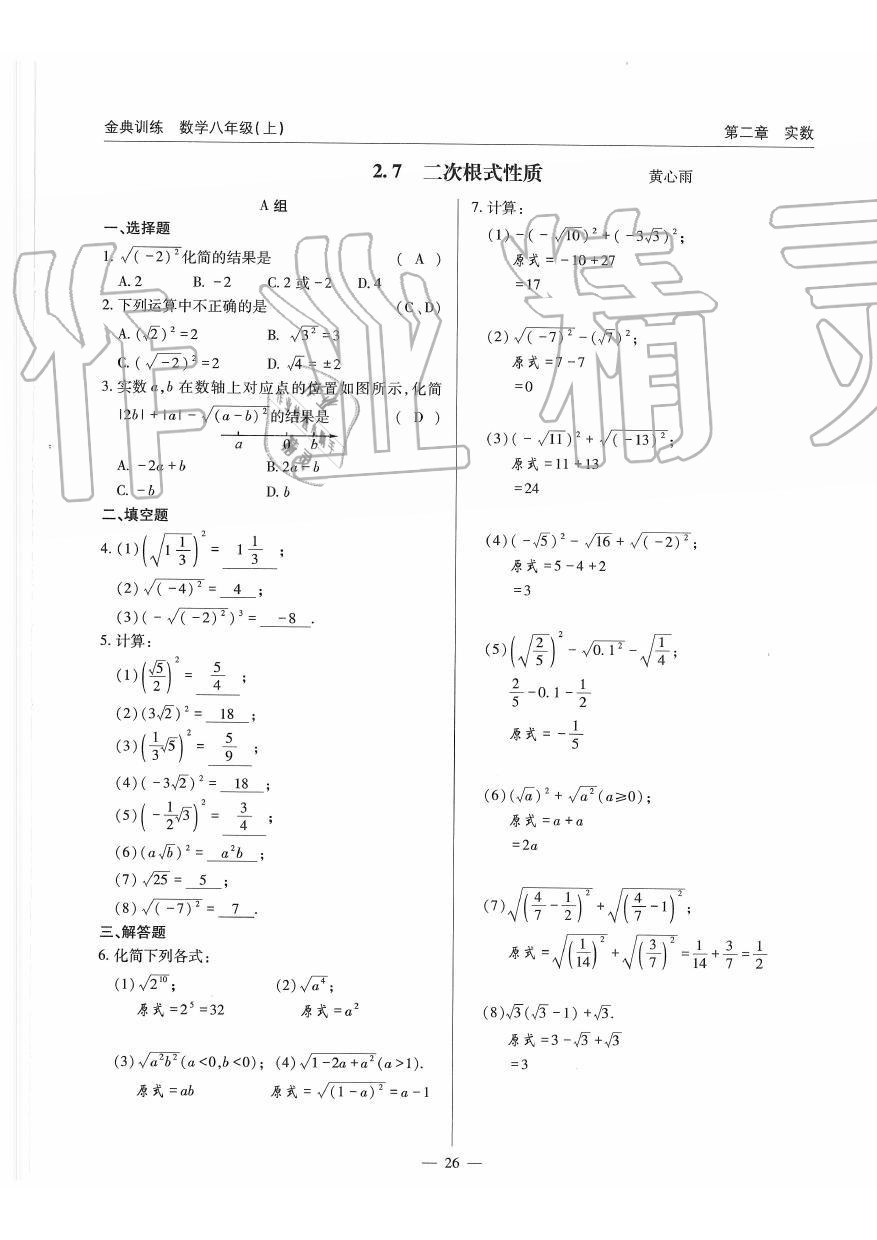 金典训练 数学八年级(上)
第二章 实数
2.7 二次根式性质 黄心雨
A组
一、选择题
1. √(-2)² 化简的结果是 ( A )
A. 2 B. -2 C. 2 或 -2 D. 4
2. 下列运算中不正确的是 (C、D)
A. (√2)² = 2 B. √3² = 3
C. (√-2)² = 2 D. √4 = ±2
3. 实数 a,b 在数轴上对应点的位置如图所示,化简
|2b| + |a| - √(a-b)² 的结果是 ( D )
a 0 b
A. -2a+b B. 2a-b
C. -b D. b
二、填空题
4. (1) (√1 1/3)² = 1 1/3 ;
(2) √(-4)² = 4 ;
(3) (-√(-2)²)³ = -8 .
5. 计算:
(1) (√5/2)² = 5/4 ;
(2) (3√2)² = 18 ;
(3) (1/3√5)² = 5/9 ;
(4) (-3√2)² = 18 ;
(5) (-1/2√3)² = 3/4 ;
(6) (a√b)² = a²b ;
(7) √25 = 5 ;
(8) √(-7)² = 7 .
三、解答题
6. 化简下列各式:
(1) √2¹⁰; (2) √a⁴;
原式 = 2⁵ = 32 原式 = a²
(3) √a²b² (a<0,b<0); (4) √1-2a+a² (a>1).
原式 = ab 原式 = √(1-a)² = a-1
7. 计算:
(1) -(-√10)² + (-3√3)²;
原式 = -10+27
= 17
(2) √(-7)² - (√7)²;
原式 = 7-7
= 0
(3) (-√11)² + √(-13)²;
原式 = 11+13
= 24
(4) (-√5)² - √16 + √(-2)²;
原式 = 5-4+2
= 3
(5) (√2/5)² - √0.1² - √1/4;
2/5 - 0.1 - 1/2
原式 = -1/5
(6) (√a)² + √a² (a≥0);
原式 = a+a
= 2a
(7) √(4/7 - 1/2)² + √(4/7 - 1)²;
原式 = √(1/14)² + √(3/7)² = 1/14 + 3/7 = 1/2
(8) √3(√3-1)+√3.
原式 = 3-√3+√3
= 3
— 26 —
作业精灵